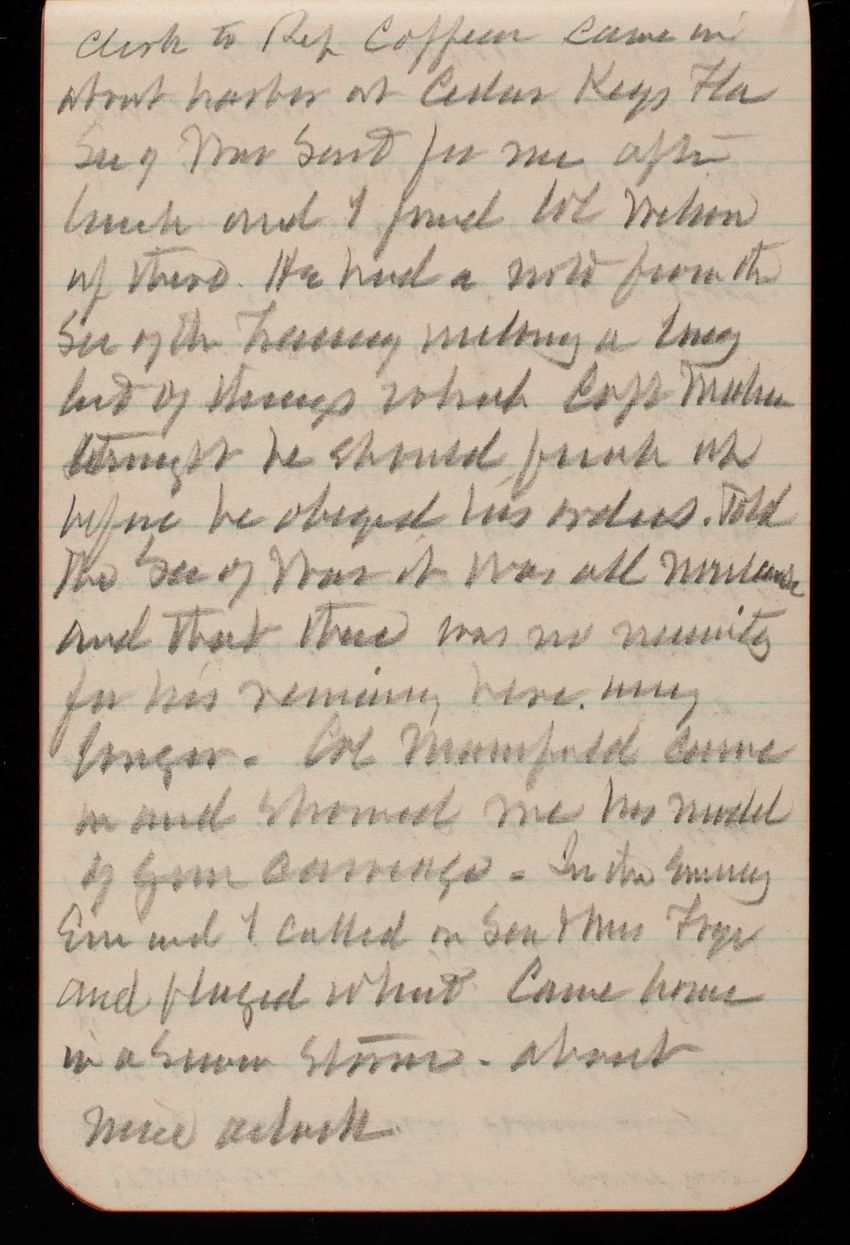 Clerk to Rep Coffeen came in
about harbor at Cedar Keys Fla
Secy of War sent for me after
lunch and I found Col Wilson
up there. He had a note from the
Sec of the Treasury making a long
list of things which Capt Mahan
thought he should finish up
before he obeyed his orders. Told
The Sec of War it was all nonsense
and that there was no necessity
for his remaining here. any
longer. Col Mannfield came
in and showed me his model
of gun carriage. In the Evening
Em and I called on Sen & Mrs Frye
and played whist Came home
in a snow storm. about
nine oclock.